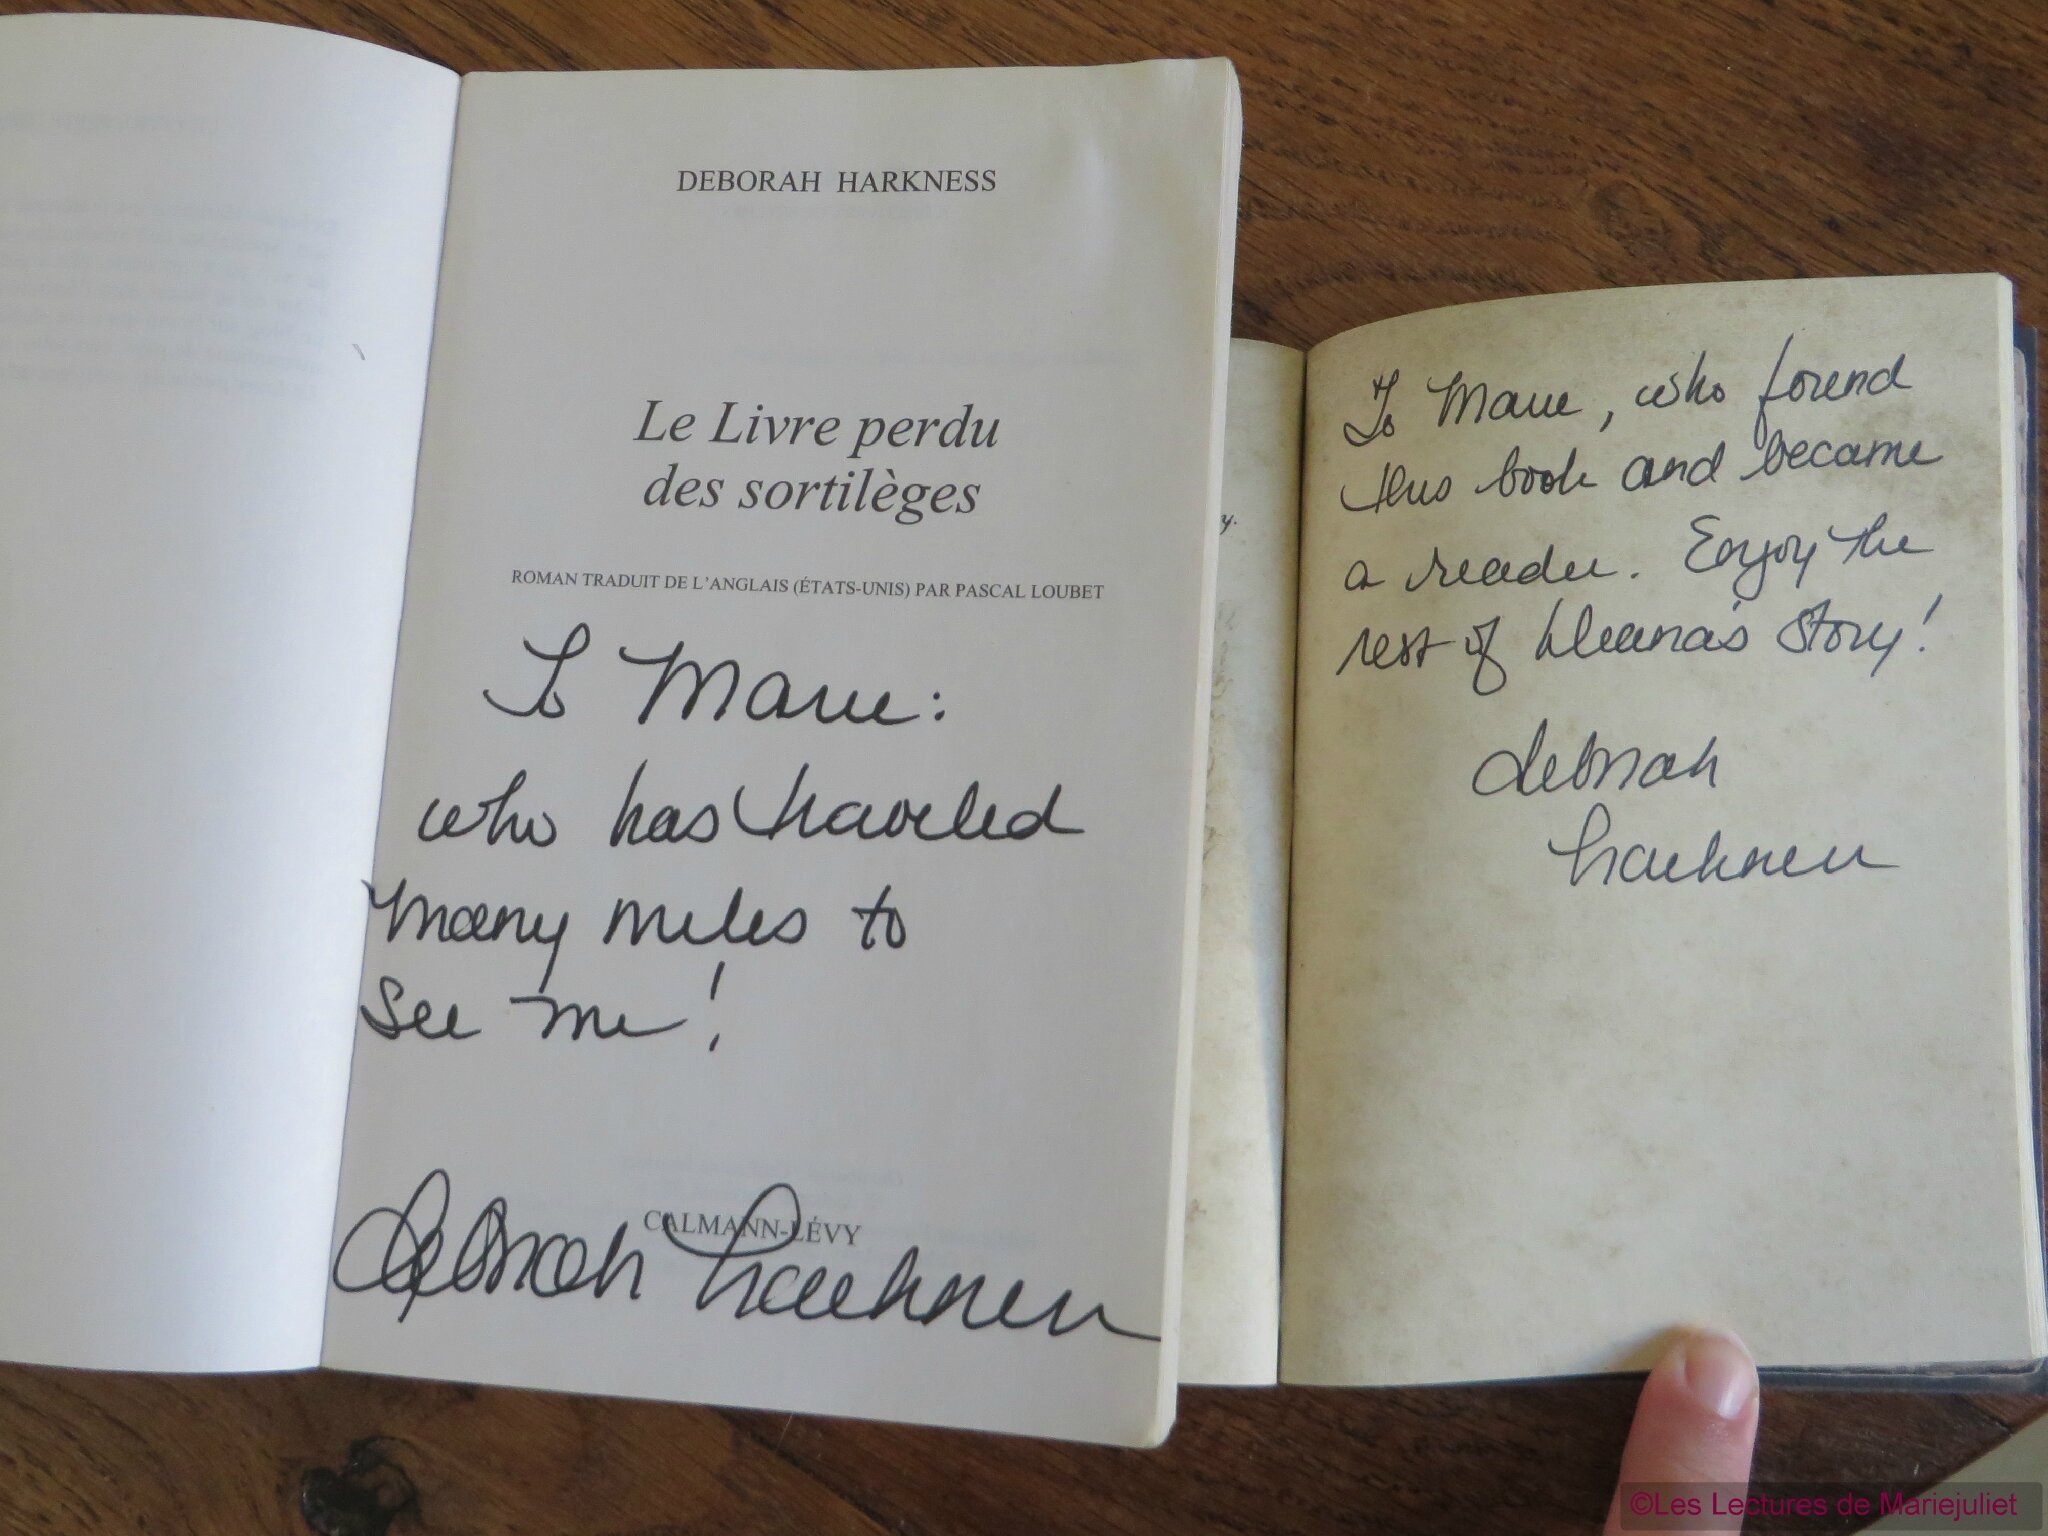 DEBORAH HARKNESS
Le Livre perdu
des sortilèges
ROMAN TRADUIT DE L'ANGLAIS (ÉTATS-UNIS) PAR PASCAL LOUBET
To Marie:
who has traveled
many miles to
see me!
CALMANN-LÉVY
Deborah Harkness
y.
To Marie, who found
this book and became
a reader. Enjoy the
rest of Diana's story!
Deborah
Harkness
©Les Lectures de Mariejuliet